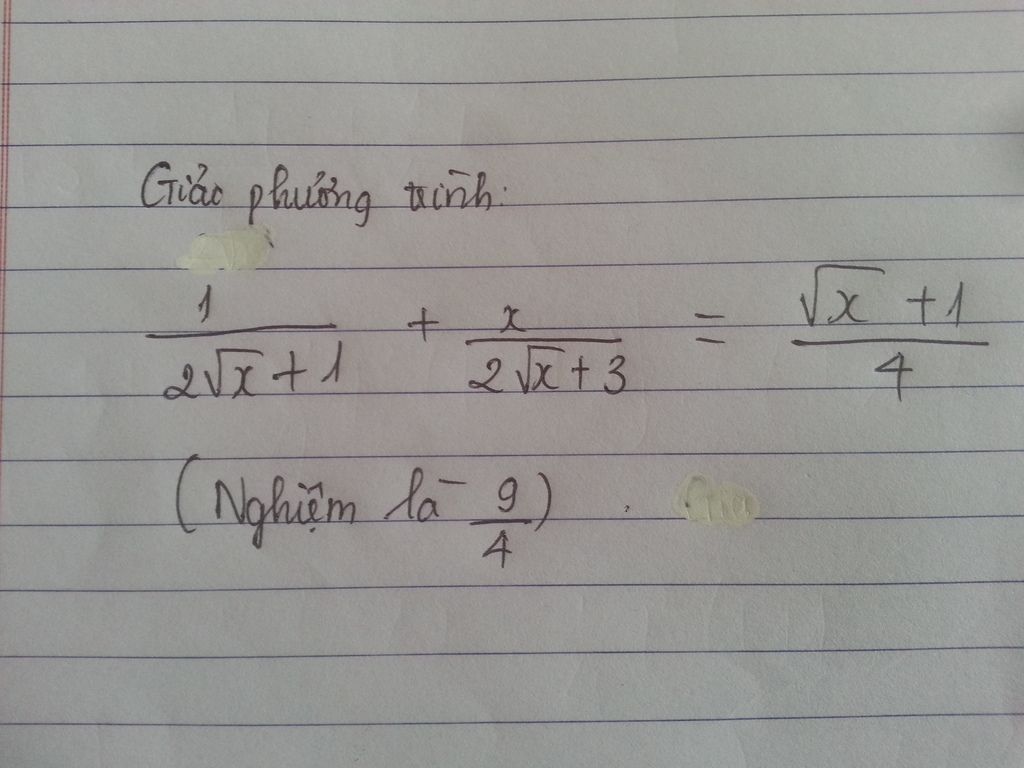 Giải phương trình:
1/(2√x + 1) + x/(2√x + 3) = (√x + 1)/4
(Nghiệm là 9/4).